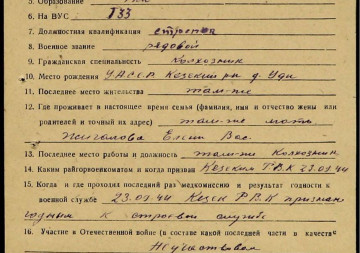 5. Образование
6. На ВУС 133
7. Должностная квалификация стрелок
8. Военное звание рядовой
9. Гражданская специальность Колхозник
10. Место рождения УАССР Кезский р-н д. Уди
11. Последнее место жительства там-же
12. Где проживает в настоящее время семья (фамилия, имя и отчество жены или
родителей и точный их адрес) там-же мать
Жигалова Елен Вас.
13. Последнее место работы и должность там-же Колхозник
14. Каким райгорвоенкоматом и когда призван Кезским РВК 23.01.44
15. Когда и где проходил последний раз медкомиссию и результат годности к
военной службе 23.01.44 Кезск РВК признан
годным к строевой службе
16. Участие в Отечественной войне (в составе какой последней части в качестве
Не участвовал